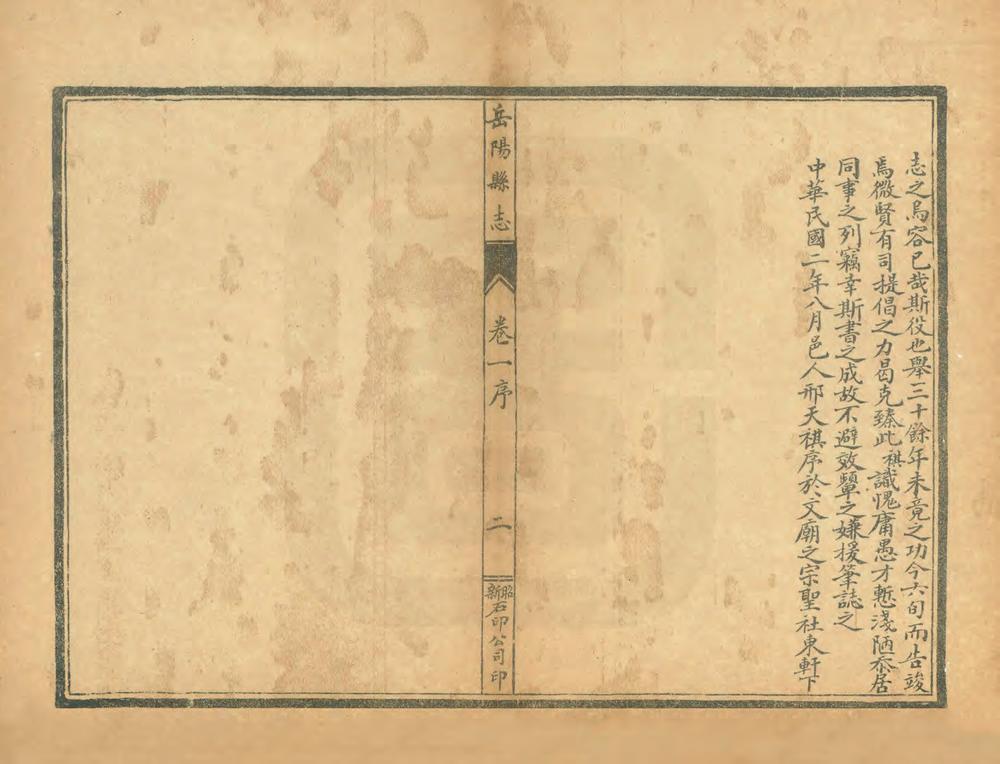 志之烏容已哉斯役也舉三十餘年未竟之功今六旬而告竣
焉微賢有司提倡之力曷克臻此祺識愧庸愚才慙淺陋忝居
同事之列竊幸斯書之成故不避效顰之嫌援筆誌之
中華民國二年八月邑人邢天祺序於文廟之宗聖社東軒下
岳陽縣志
卷一序
二
昭新石印公司印